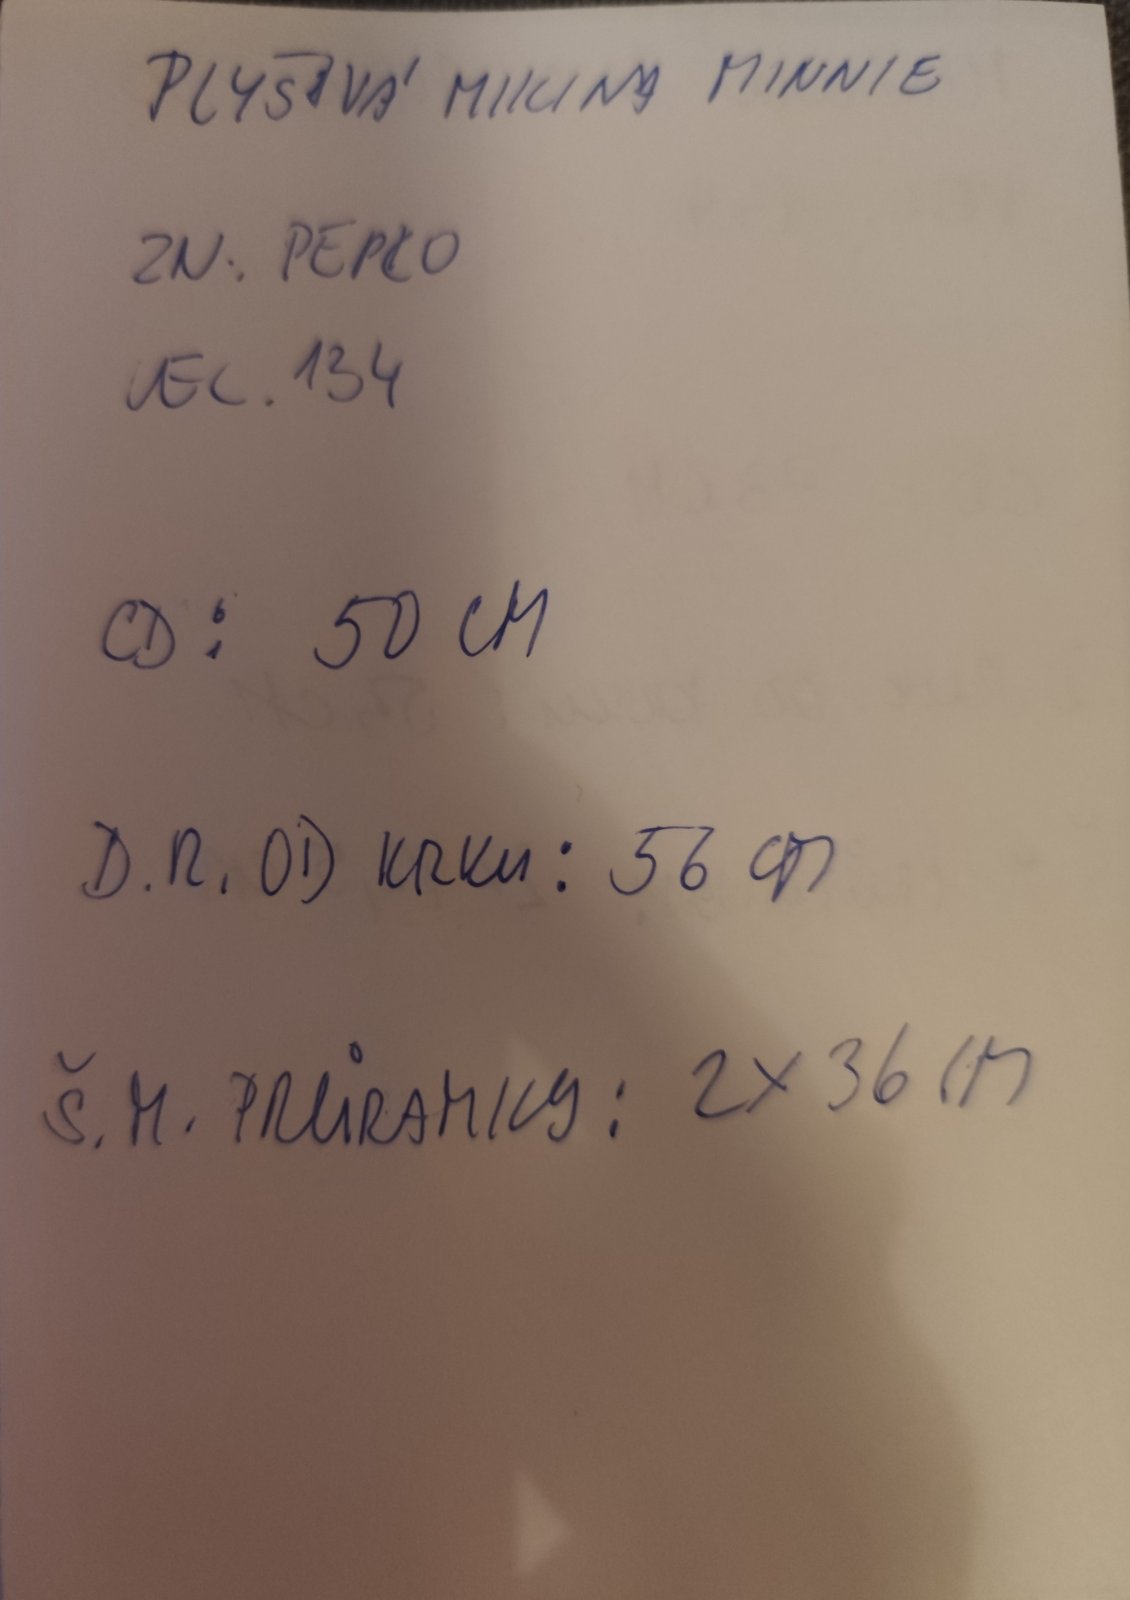 PLYŠOVÁ MIKINA MINNIE
ZN. PEPCO
VEL. 134
CD: 50 CM
D.R. OD KRKU: 56 CM
Š.M. PRŮRAMKY: 2x36 CM